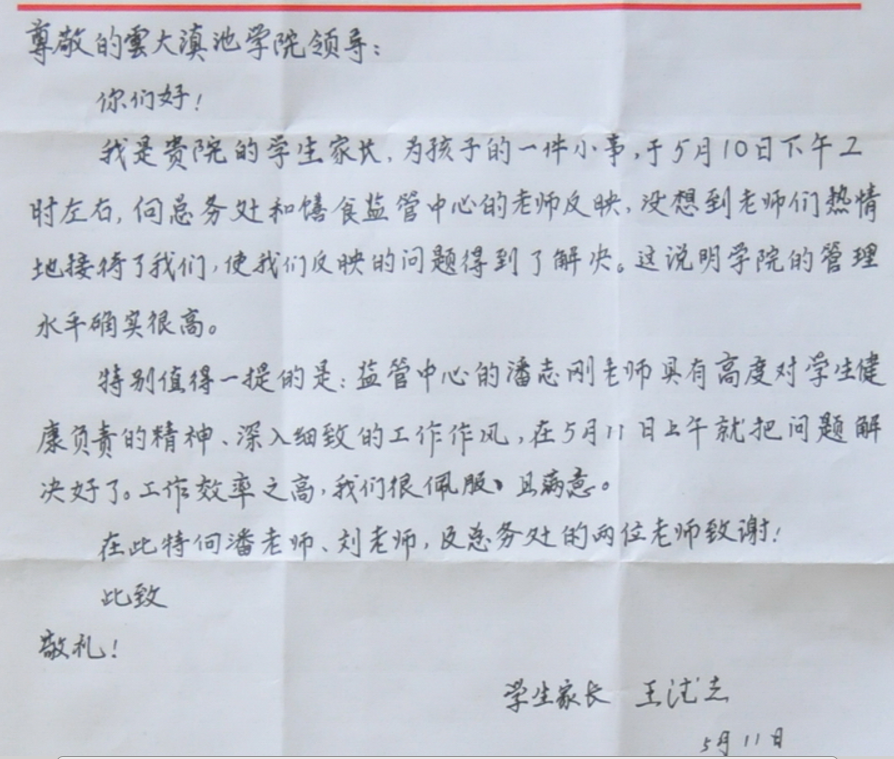 尊敬的雲大滇池学院领导：
你们好！
我是贵院的学生家长，为孩子的一件小事，于5月10日下午2
时左右，向总务处和膳食监管中心的老师反映，没想到老师们热情
地接待了我们，使我们反映的问题得到了解决。这说明学院的管理
水平确实很高。
特别值得一提的是：监管中心的潘志刚老师具有高度对学生健
康负责的精神、深入细致的工作作风，在5月11日上午就把问题解
决好了。工作效率之高，我们很佩服、且满意。
在此特向潘老师、刘老师，及总务处的两位老师致谢！
此致
敬礼！
学生家长 王
5月11日